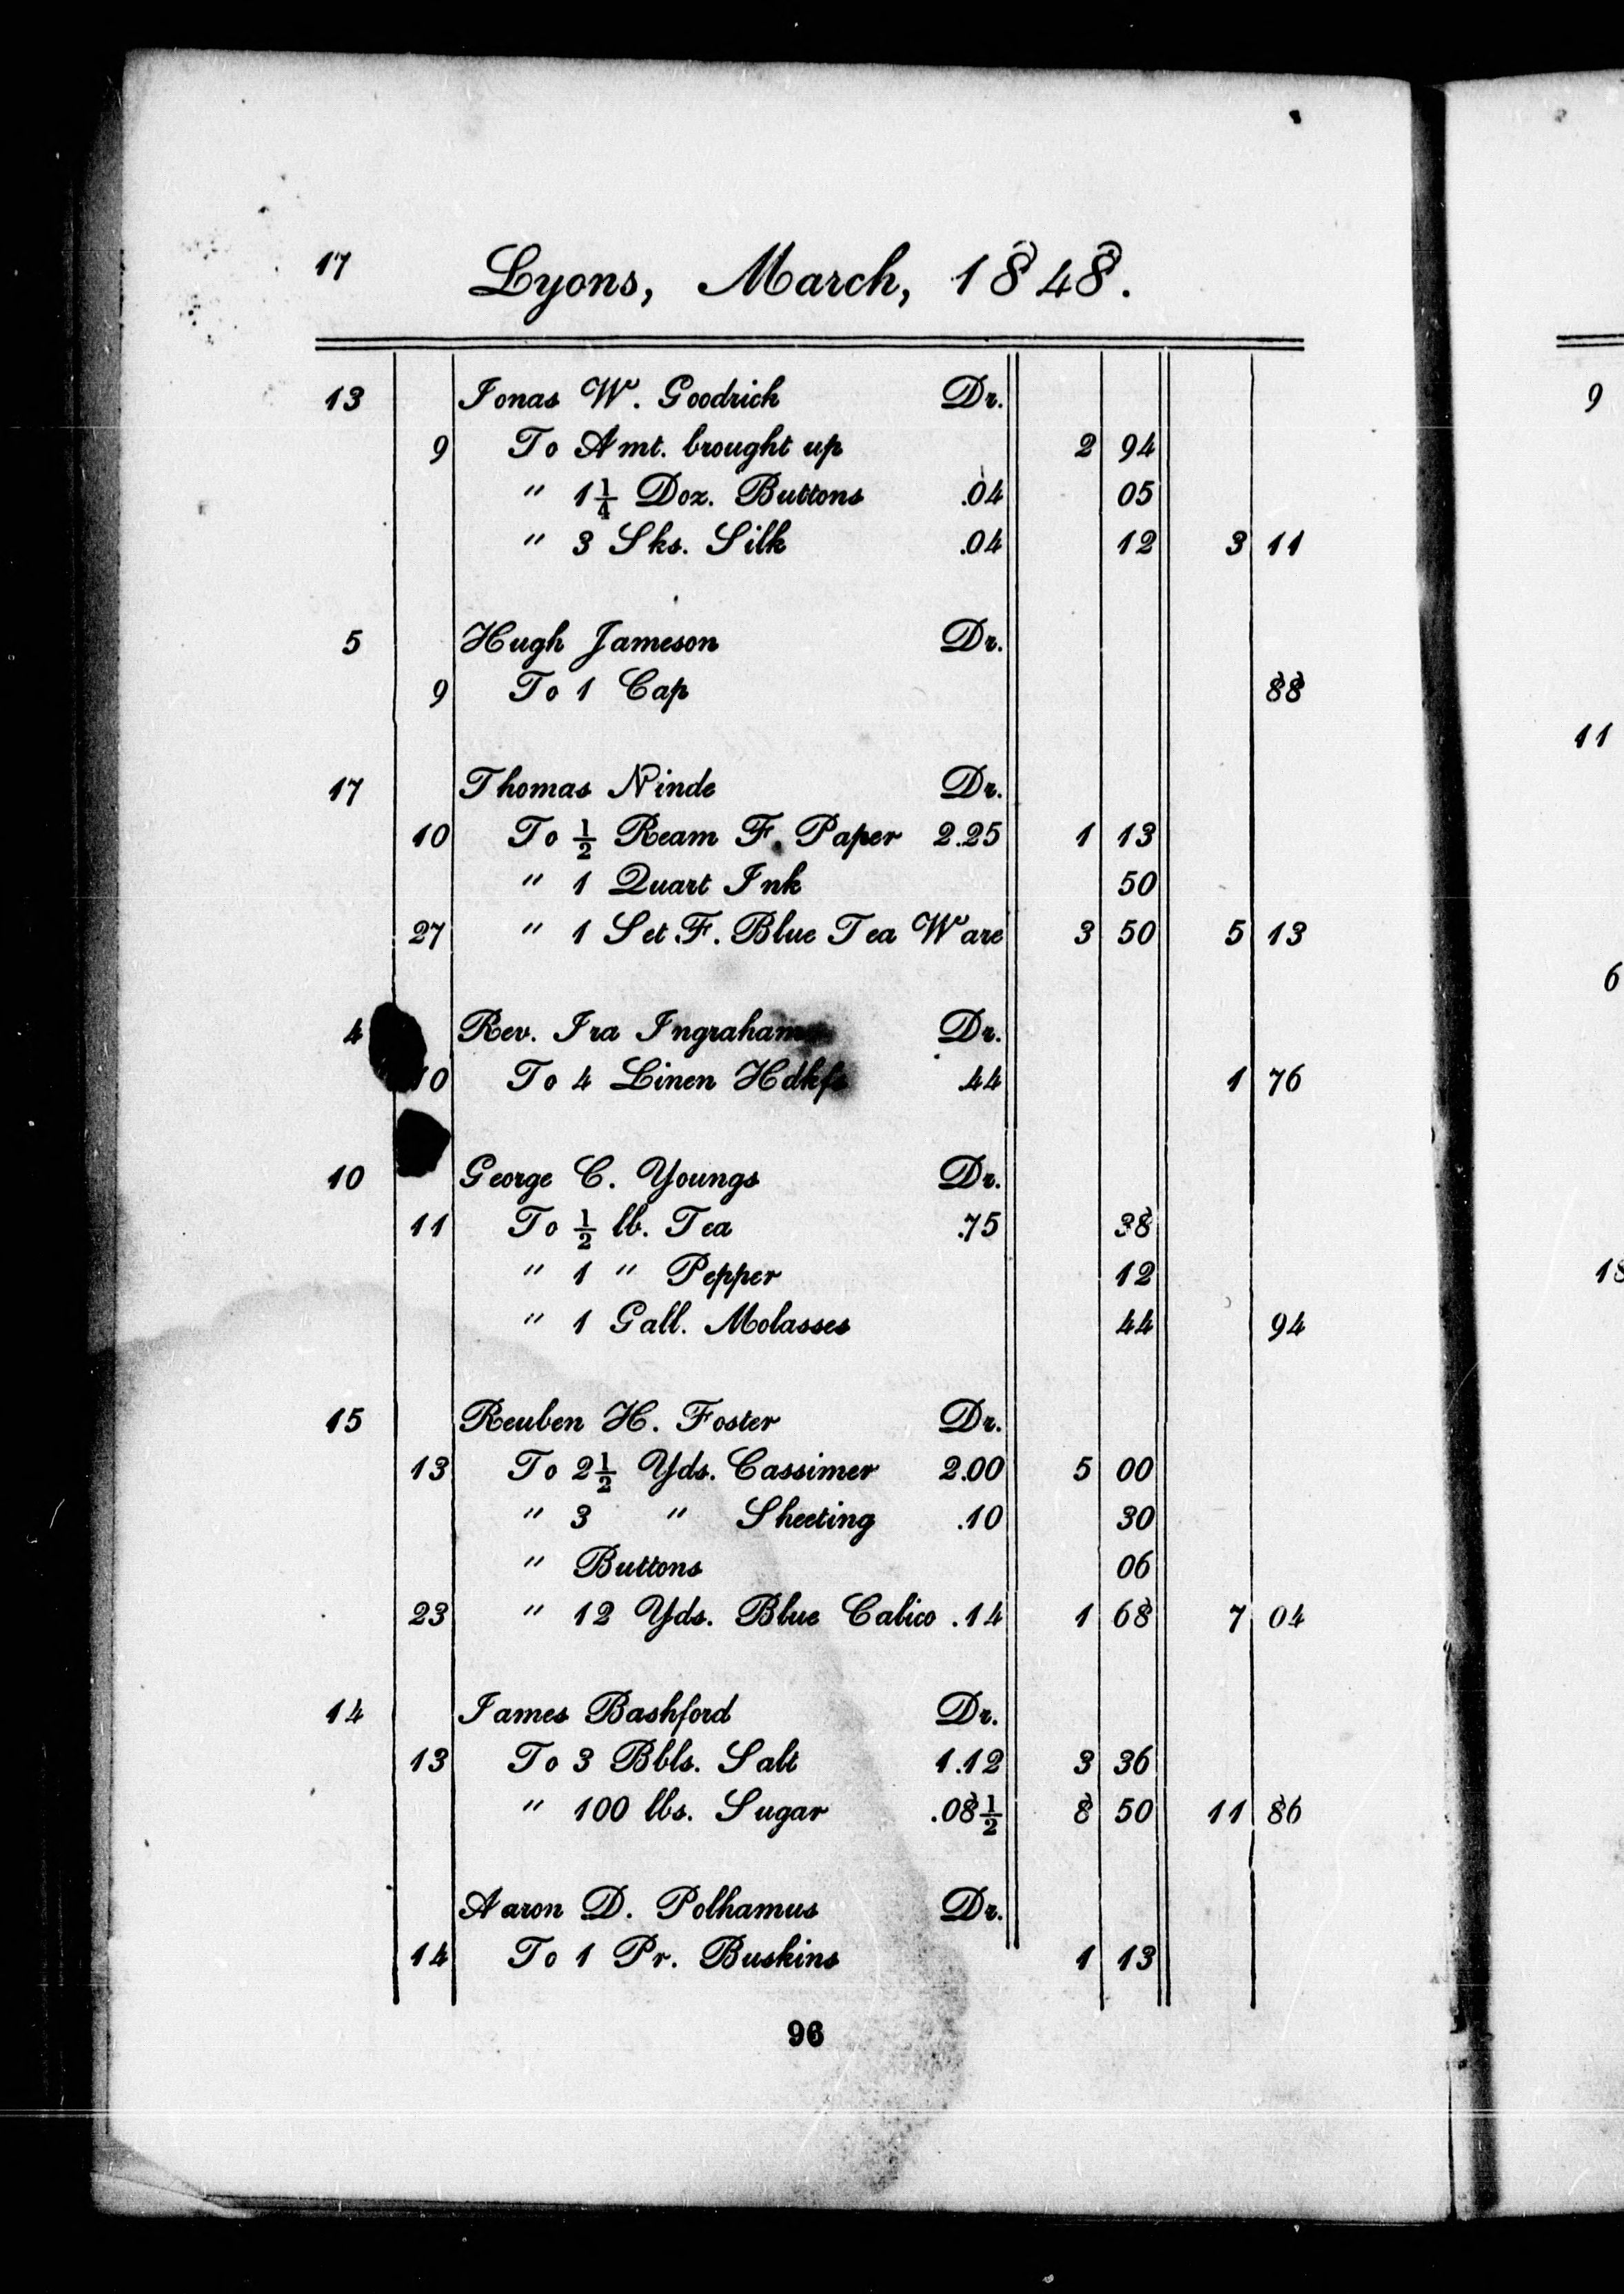 17 Lyons, March, 1848.
13 Jonas W. Goodrich Dr.
9 To Amt. brought up 2 94
" 1 1/4 Doz. Buttons .04 05
" 3 Sks. Silk .04 12 3 11
5 Hugh Jameson Dr.
9 To 1 Cap 88
17 Thomas Ninde Dr.
10 To 1/2 Ream F. Paper 2.25 1 13
" 1 Quart Ink 50
27 " 1 Set F. Blue Tea Ware 3 50 5 13
4 Rev. Ira Ingraham Dr.
10 To 4 Linen Hdkfs .44 1 76
10 George C. Youngs Dr.
11 To 1/2 lb. Tea .75 38
" 1 " Pepper 12
" 1 Gall. Molasses 44 94
15 Reuben H. Foster Dr.
13 To 2 1/2 Yds. Cassimer 2.00 5 00
" 3 " Sheeting .10 30
" Buttons 06
23 " 12 Yds. Blue Calico .14 1 68 7 04
14 James Bashford Dr.
13 To 3 Bbls. Salt 1.12 3 36
" 100 lbs. Sugar .08 1/2 8 50 11 86
Aaron D. Polhamus Dr.
14 To 1 Pr. Buskins 1 13
96
9
11
6